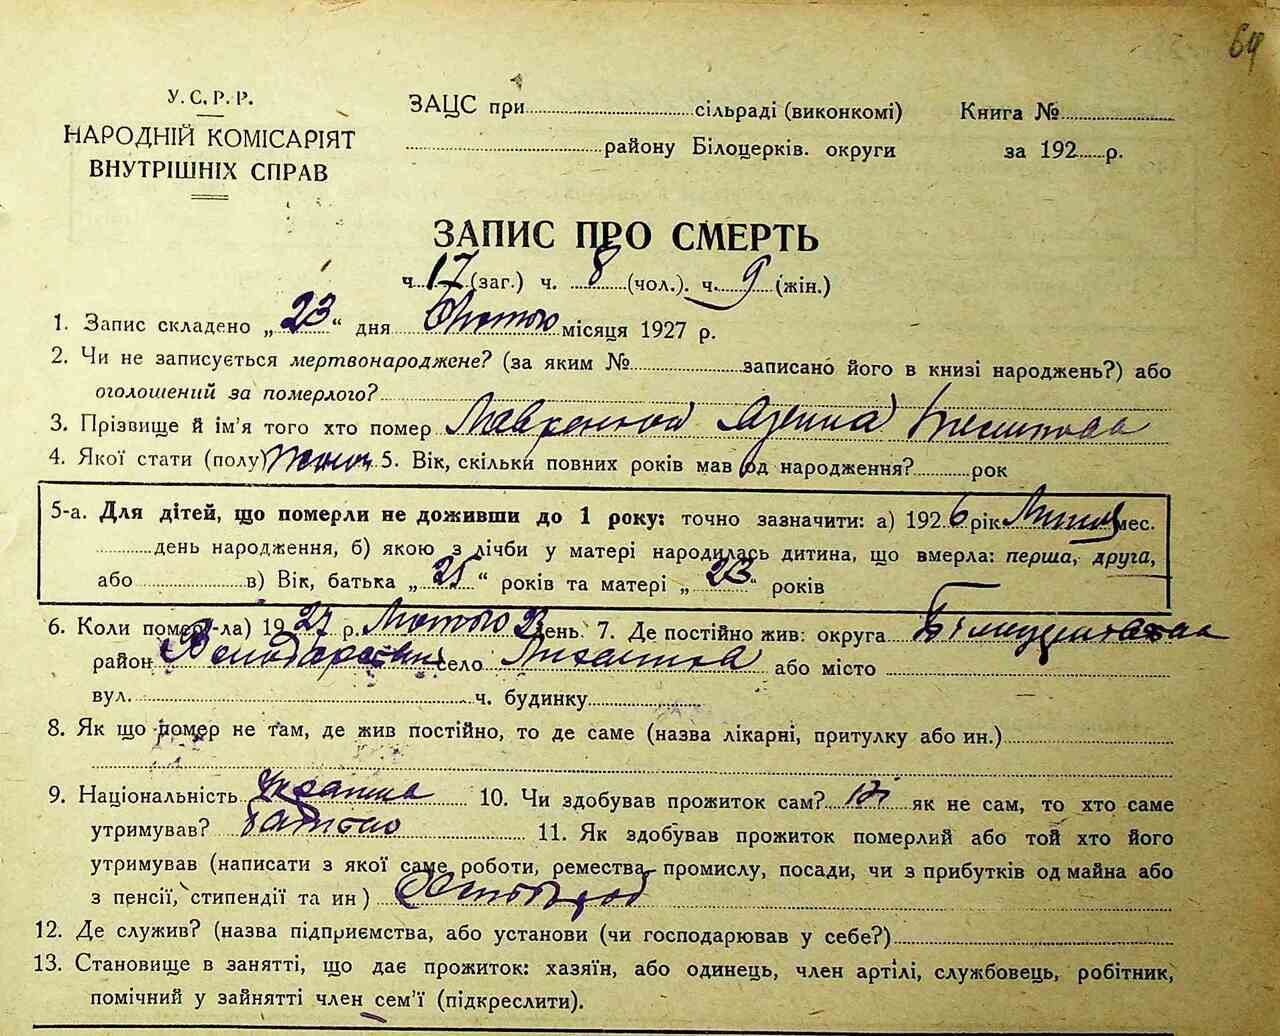 64
У.С.Р.Р.
НАРОДНІЙ КОМІСАРІЯТ
ВНУТРІШНІХ СПРАВ
ЗАЦС при сільраді (виконкомі)
району Білоцерків. округи
Книга №
за 192 р.
ЗАПИС ПРО СМЕРТЬ
ч. 17 (заг.) ч. 8 (чол.). ч. 9 (жін.)
1. Запис складено „ 23 “ дня Лютого місяця 1927 р.
2. Чи не записується мертвонароджене? (за яким № записано його в книзі народжень?) або
оголошений за померлого?
3. Прізвище й ім'я того хто помер
4. Якої статі (полу) 5. Вік, скільки повних років мав од народження? рок
5-а. Для дітей, що померли не доживши до 1 року: точно зазначити: а) 1926 рік мес.
день народження, б) якою з лічби у матері народилась дитина, що вмерла: перша, друга,
або в) Вік, батька „ 25 “ років та матері „ 23 “ років
6. Коли помер(-ла) 1927 р. Лютого день 7. Де постійно жив: округа Білоцерківская
район Володарський село або місто
вул. ч. будинку
8. Як що помер не там, де жив постійно, то де саме (назва лікарні, притулку або ин.)
9. Національність 10. Чи здобував прожиток сам? ні як не сам, то хто саме
утримував? батько 11. Як здобував прожиток померлий або той хто його
утримував (написати з якої саме роботи, ремества, промислу, посади, чи з прибутків од майна або
з пенсії, стипендії та ин )
12. Де служив? (назва підприємства, або установи (чи господарював у себе?)
13. Становище в занятті, що дає прожиток: хазяїн, або одинець, член артілі, службовець, робітник,
помічний у зайнятті член сем'ї (підкреслити).